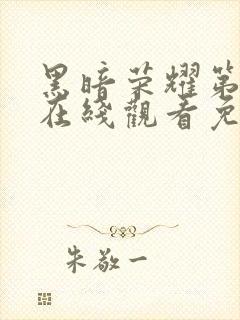 黑暗荣耀第
在綫觀看免
朱敬一